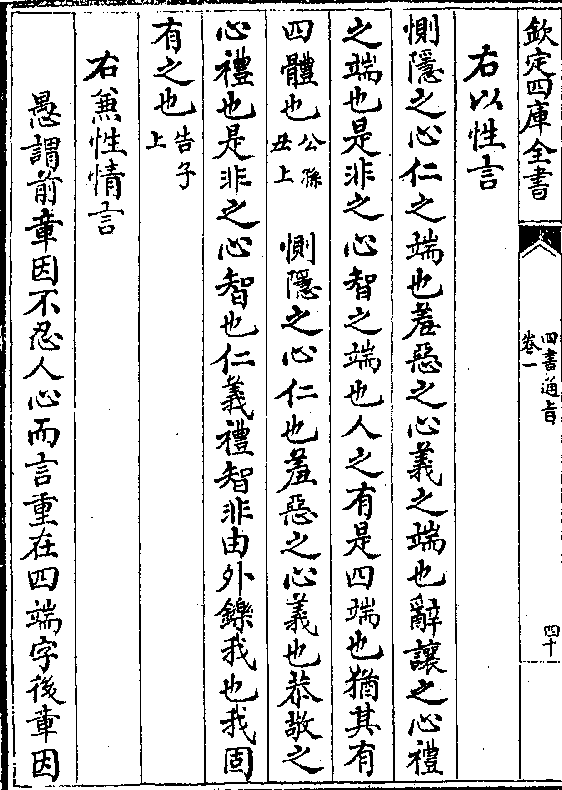 欽定四庫全書
四書通旨
卷一
四十
右以性言
惻隱之心仁之端也羞惡之心義之端也辭讓之心禮
之端也是非之心智之端也人之有是四端也猶其有
四體也公孫丑上 惻隱之心仁也羞惡之心義也恭敬之
心禮也是非之心智也仁義禮智非由外鑠我也我固
有之也告子上
右兼性情言
愚謂前章因不忍人心而言重在四端字後章因